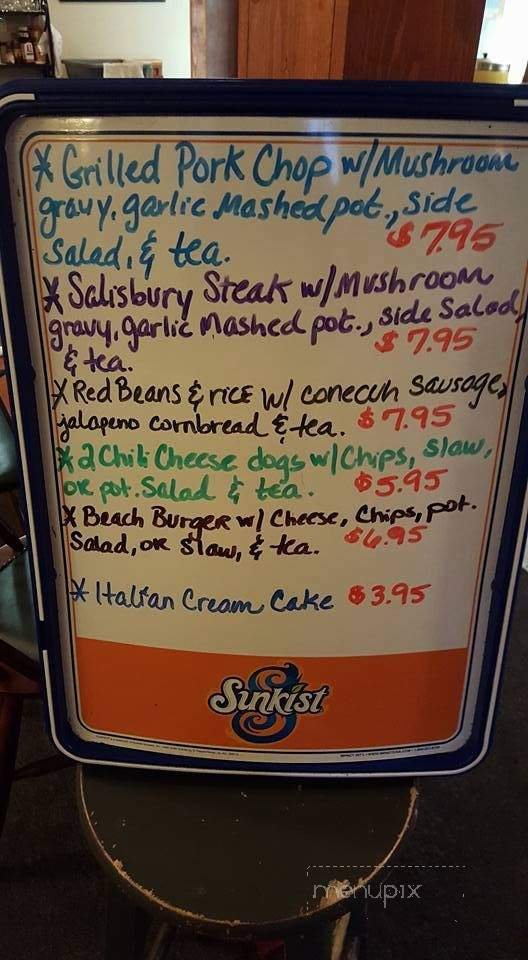 * Grilled Pork Chop w/Mushroom
gravy, garlic Mashed pot., side
salad, & tea. $7.95
* Salisbury Steak w/Mushroom
gravy, garlic Mashed pot., side Salad,
& tea. $7.95
* Red Beans & rice w/ conecuh sausage,
jalapeno cornbread & tea. $7.95
* 2 Chili Cheese dogs w/Chips, slaw,
or pot. Salad & tea. $5.95
* Beach Burger w/ Cheese, Chips, pot.
Salad, or slaw, & tea. $6.95
* Italian Cream Cake $3.95
Sunkist
menupix